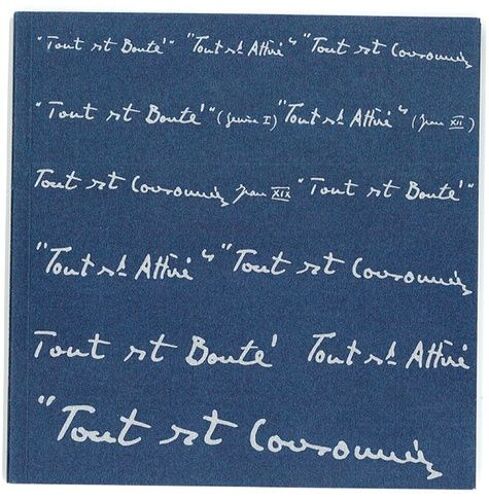 "Tout est Bonté" "Tout est Attiré" "Tout est Couronné
"Tout est Bonté" (Genèse I) "Tout est Attiré" (Jean XII)
Tout est Couronné Jean XIX "Tout est Bonté"
"Tout est Attiré" "Tout est Couronné
Tout est Bonté Tout est Attiré
"Tout est Couronné